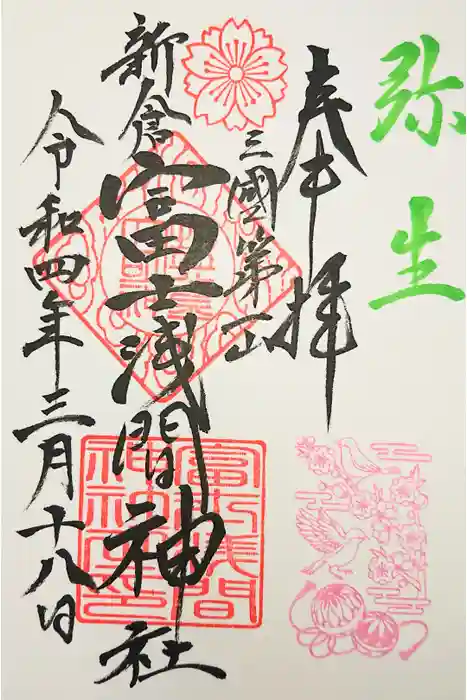 弥生
奉拝
三國第一山
新倉富士浅間神社
令和四年三月十八日